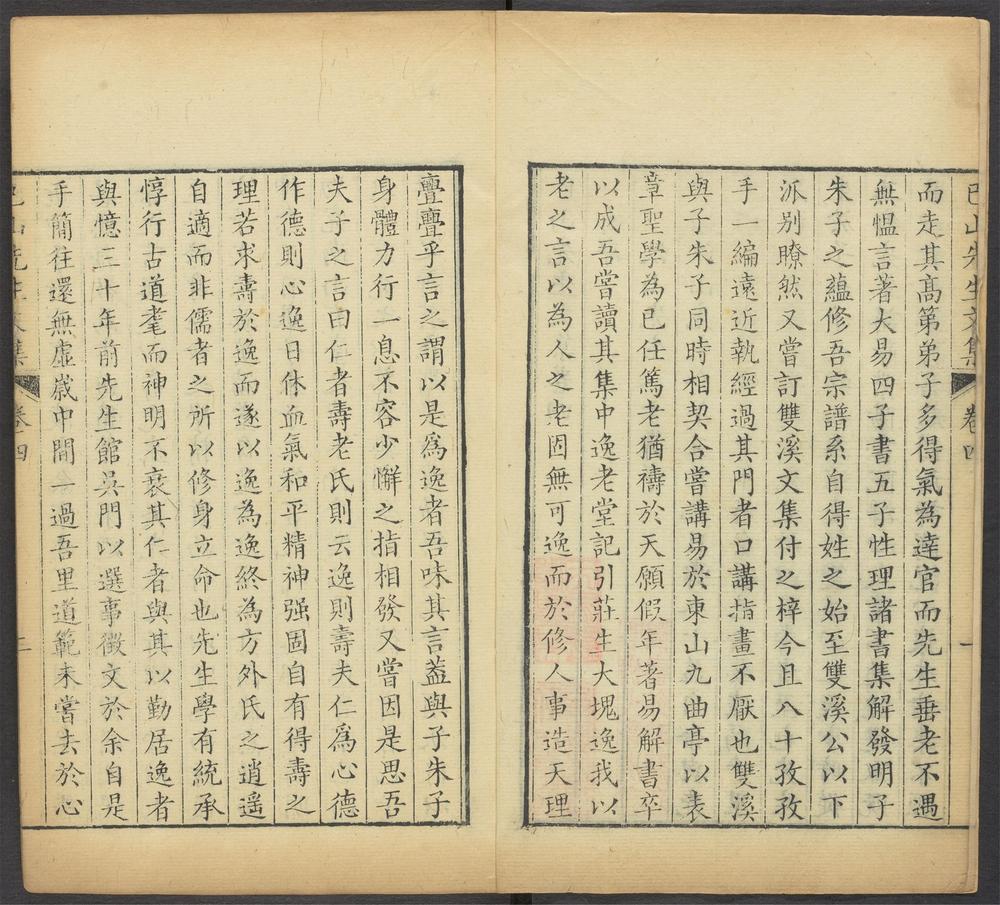 巳山先生文集 卷四 一
而走其高第弟子多得氣為達官而先生垂老不遇
無慍言著大易四子書五子性理諸書集解發明子
朱子之蘊修吾宗譜系自得姓之始至雙溪公以下
派别瞭然又嘗訂雙溪文集付之梓今且八十孜孜
手一編遠近執經過其門者口講指畫不厭也雙溪
與子朱子同時相契合嘗講易於東山九曲亭以表
章聖學為已任篤老猶禱於天願假年著易解書卒
以成吾嘗讀其集中逸老堂記引莊生大塊逸我以
老之言以為人之老固無可逸而於修人事造天理
亹亹乎言之謂以是為逸者吾味其言葢與子朱子
身體力行一息不容少懈之指相發又嘗因是思吾
夫子之言曰仁者壽老氏則云逸則壽夫仁為心德
作德則心逸日休血氣和平精神强固自有得壽之
理若求壽於逸而遂以逸為逸終為方外氏之逍遥
自適而非儒者之所以修身立命也先生學有統承
惇行古道耄而神明不衰其仁者與其以勤居逸者
與憶三十年前先生館吳門以選事徵文於余自是
手簡往還無虛嵗中間一過吾里道範未嘗去於心
巳山先生文集 卷四